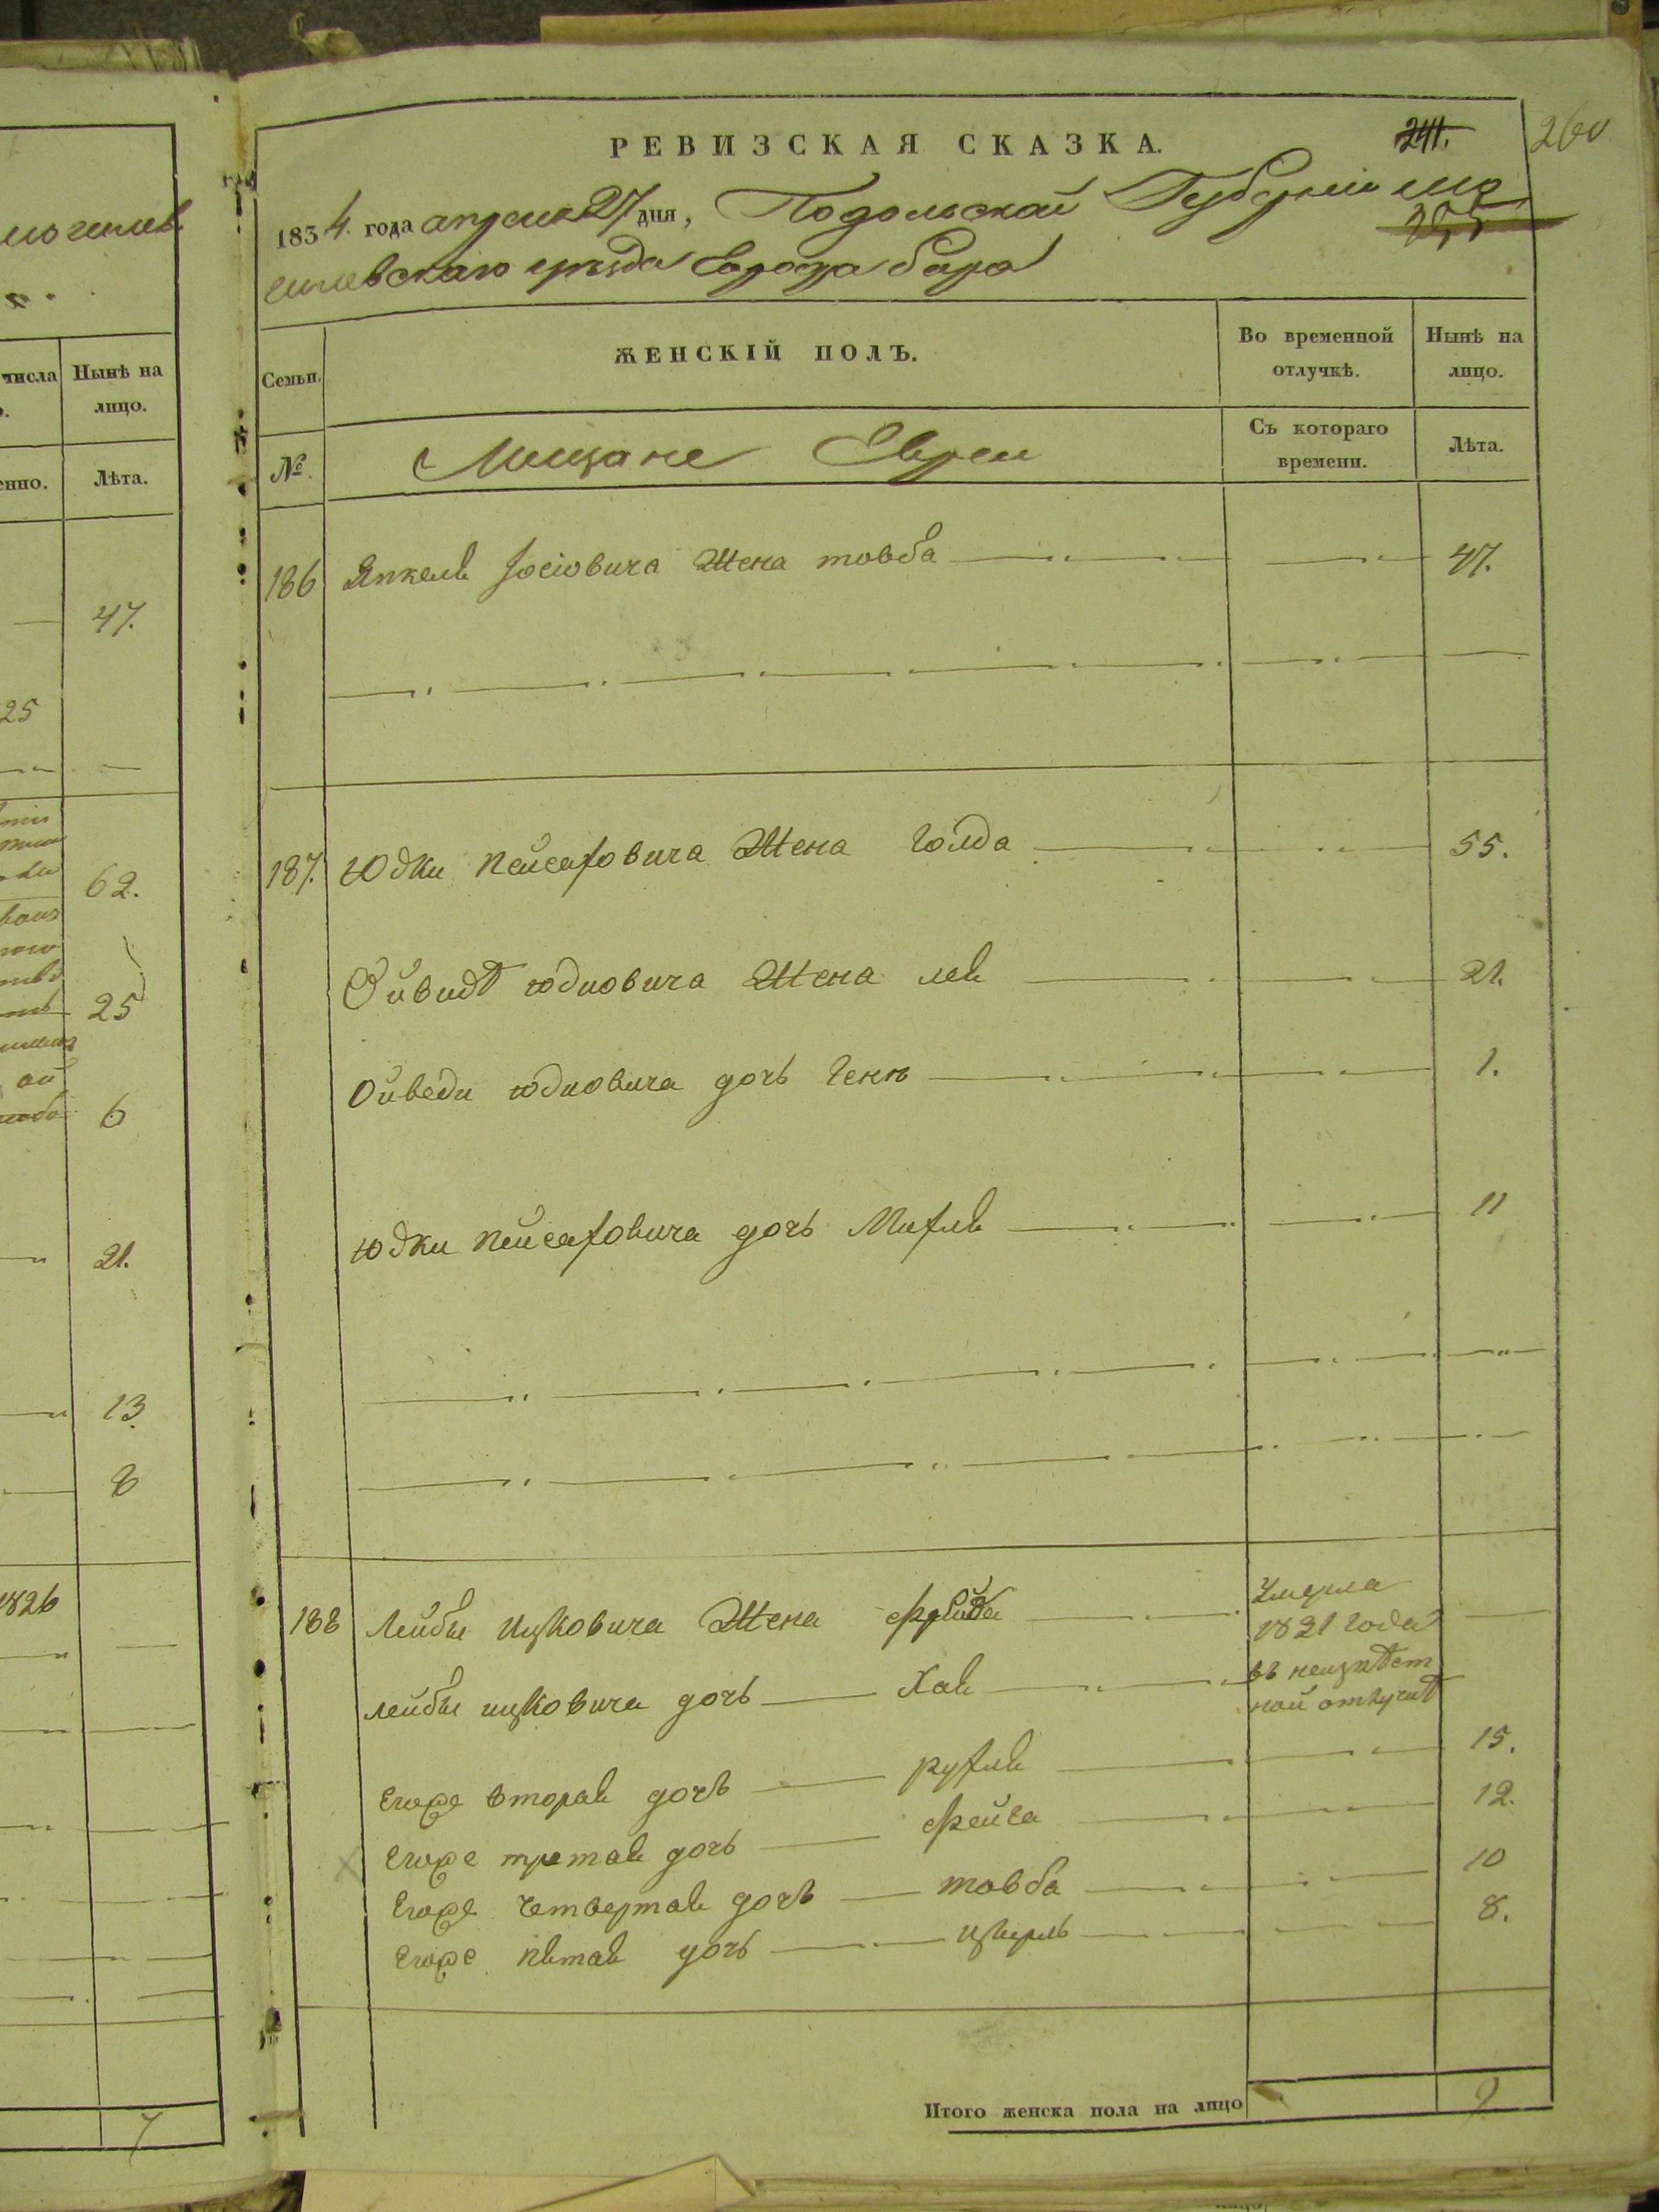 РЕВИЗСКАЯ СКАЗКА.
241.
260
1834 года апреля 27 дня, Подольской Губерніи мо
255
гилевскаго уезда Города бара
Семьи.
ЖЕНСКІЙ ПОЛЪ.
Во временной отлучкѣ.
Нынѣ на лицо.
№.
Мещане Евреи
Съ котораго времени.
Лѣта.
186 Янкеля Іосіовича Жена товба 47.
187. Юдки Пейсаховича Жена Голда 55.
Ойвидя юдковича Жена лея 21.
Ойведи юдковича дочь Геня 1.
юдки Пейсаховича дочь Михля 11
188 Лейбы Ицковича Жена Фрейда Умерла
1821 года
лейбы ицковича дочь Хая въ неизвѣст
ной отлучкѣ
Егоже вторая дочь рухля 15.
Егоже третая дочь Фейга 12.
Егоже четвертая дочь товба 10
Егоже пятая дочь 8.
Итого женска пола на лицо 9
числа
Нынѣ на лицо.
Лѣта.
47.
25
62.
25
6
21.
13.
8
1826
7